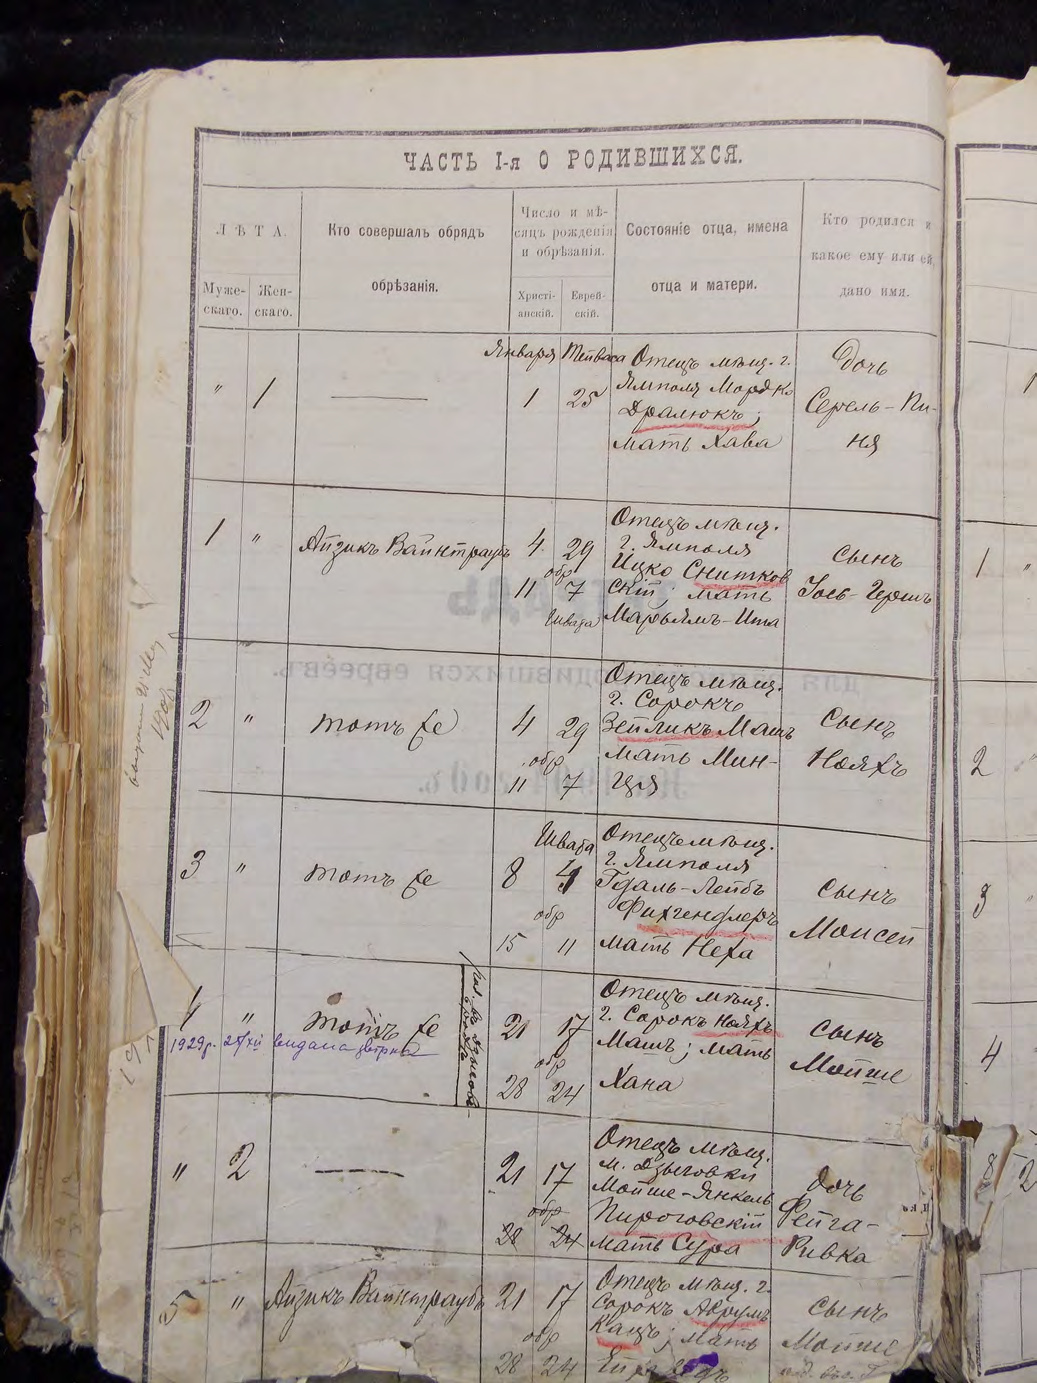 ЧАСТЬ I-я О РОДИВШИХСЯ.
ЛѢТА.
Муже-
скаго.
Жен-
скаго.
Кто совершалъ обрядъ
обрѣзанія.
Число и мѣ-
сяцъ рожденія
и обрѣзанія.
Христі-
анскій.
Еврей-
скій.
Состояніе отца, имена
отца и матери.
Кто родился и
какое ему или ей,
дано имя.
Января Тейваса
" 1 1 25
Отецъ мѣщ. г.
Ямполя Мордко
Дралюкъ;
мать Хава
Дочь
Серель-Пи-
ня
1 " Айзикъ Вайнтраубъ 4 29
обр
11 7
Швата
Отецъ мѣщ.
г. Ямполя
Ицко Снитков
скій; мать
Марьямъ-Ита
сынъ
Іось-Гершъ
2 " тотъ же 4 29
обр
11 7
Отецъ мѣщ.
г. Сорокъ
Зейликъ Машъ
мать Мин-
ця
Сынъ
Нояхъ
Швата
3 " тотъ же 8 4
обр
15 11
Отецъ мѣщ.
г. Ямполя
Гдаль-Лейбъ
Фихгендлеръ
мать Неха
сынъ
Моисей
4 " тотъ же 21 17
обр
28 24
1929г.
Отецъ мѣщ.
г. Сорокъ Нояхъ
Машъ; мать
Хана
сынъ
Мойше
" 2 21 17
обр
28 24
Отецъ мѣщ.
м. Дзыговки
Мойше-Янкель
Пироговскій
мать Сура
дочь
Фейга-
Ривка
5 " Айзикъ Вайнтраубъ 21 17
обр
28 24
Отецъ мѣщ. г.
Сорокъ Аврумъ
Кацъ; мать
сынъ
Мойше
1 "
2
3
4